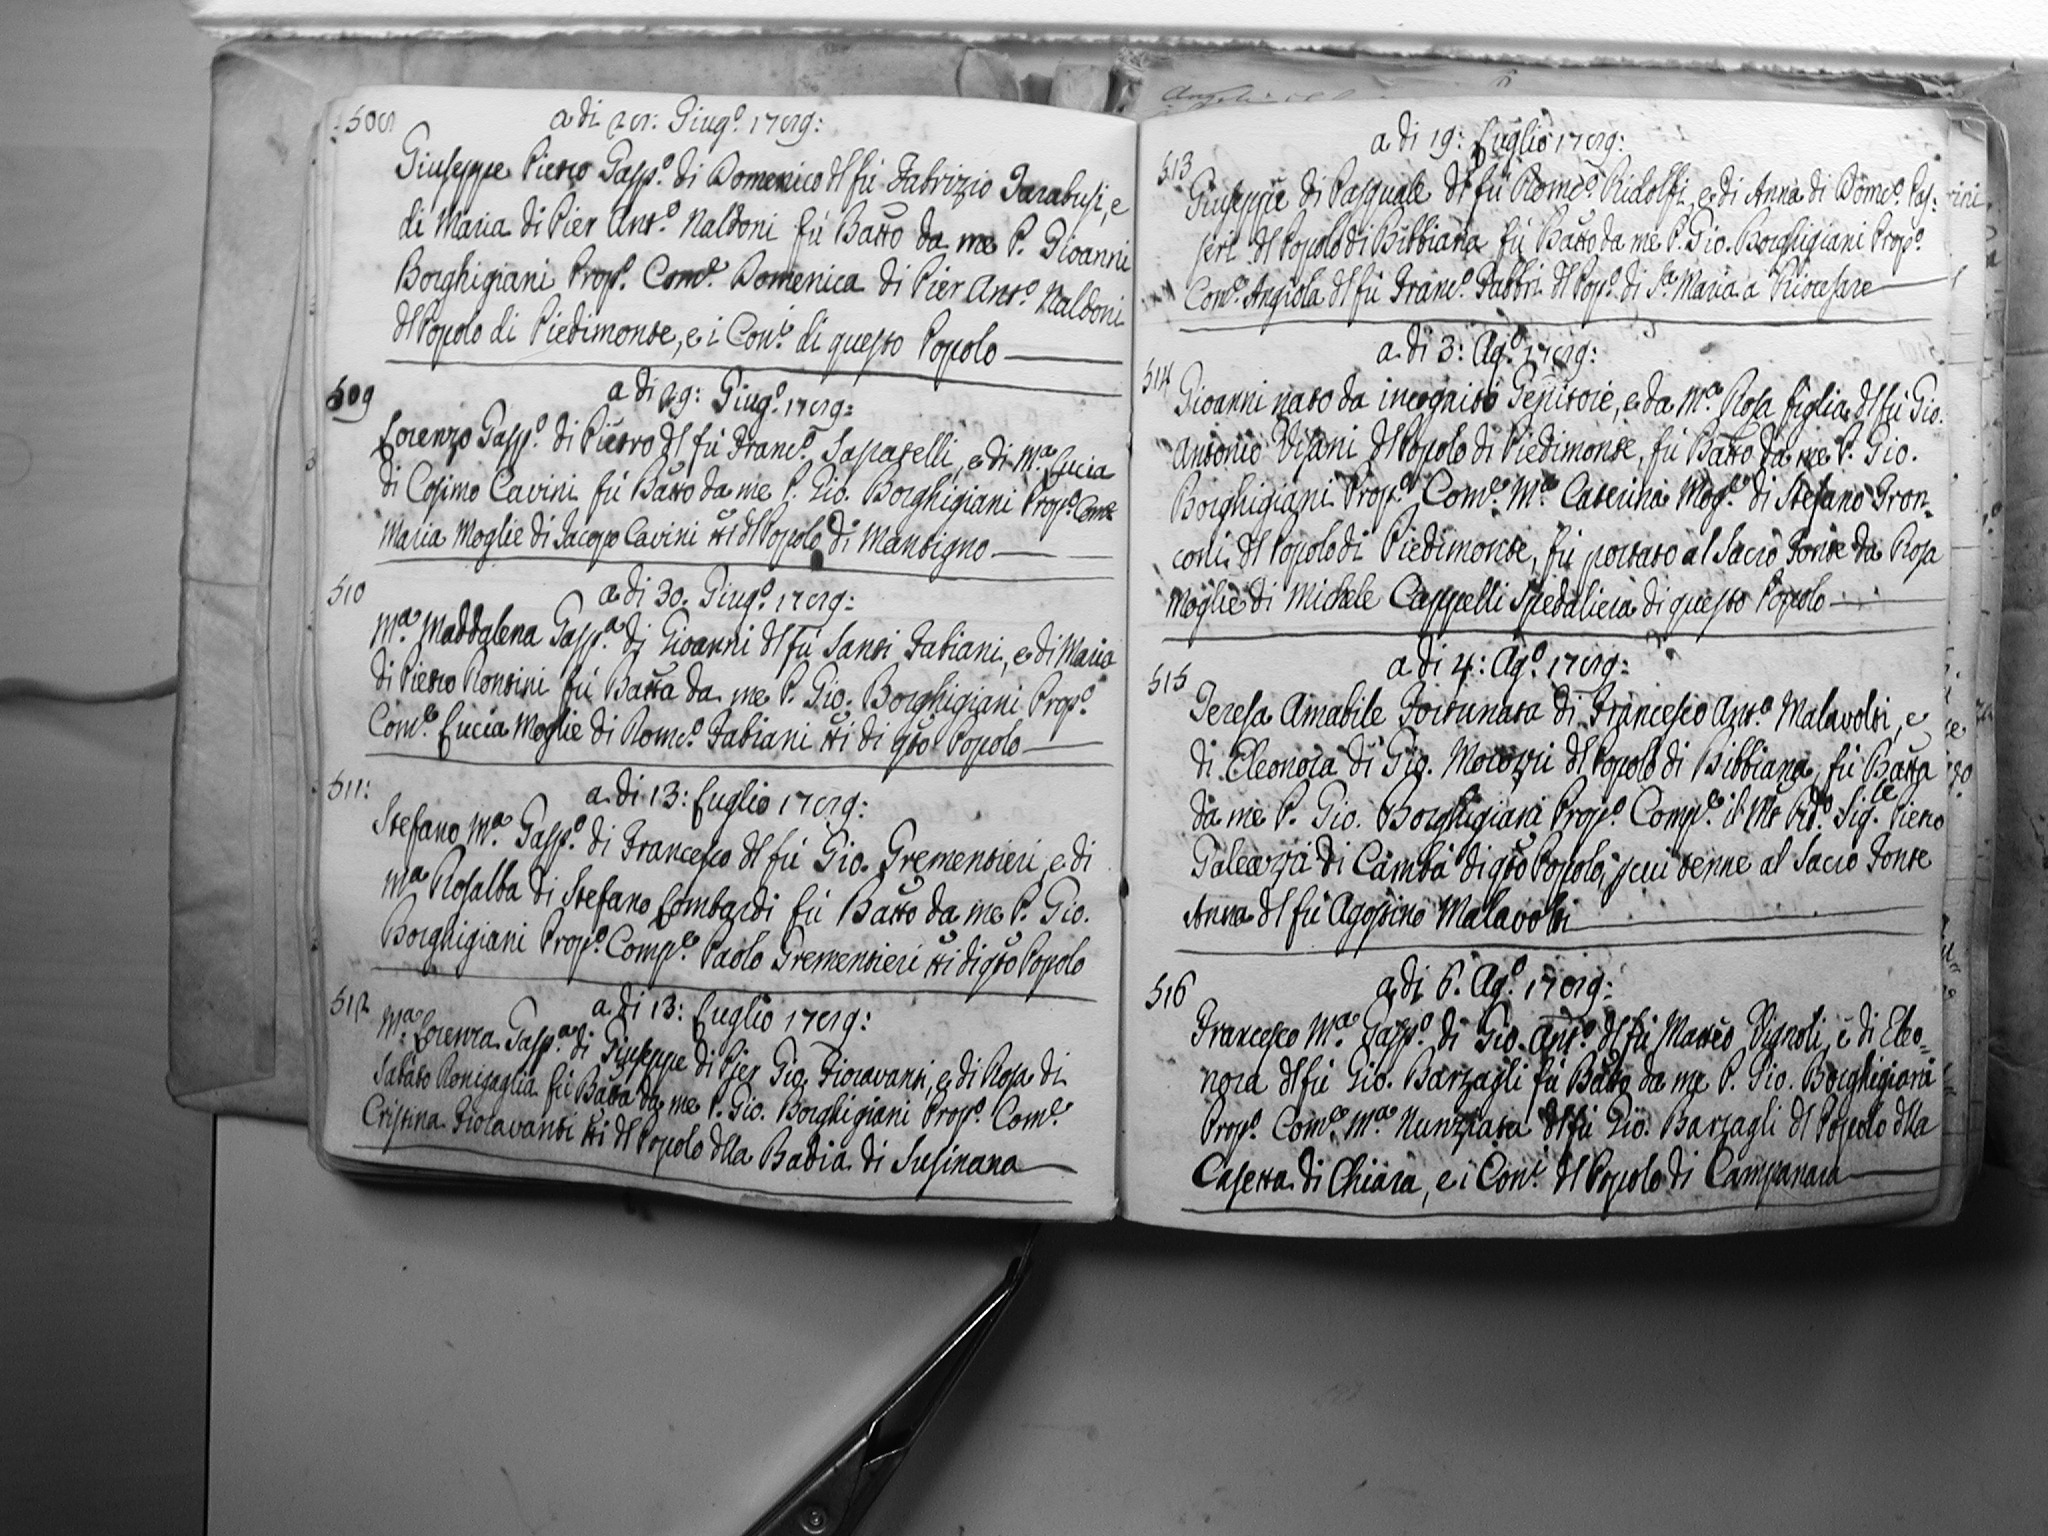 508
a di 28: Giug.º 1789:
Giuseppe Pietro Gasp.º di Domenico dl fù Fabrizio Tarabusi, e
di Maria di Pier Ant.º Naldoni fù Batto da me P. Gioanni
Borghigiani Prop.º Com.e Domenica di Pier Ant.º Naldoni
dl Popolo di Piedimonte, e i Con.i di questo Popolo
509
a di 29: Giug.º 1789:
Lorenzo Gasp.º di Pietro dl fù Franc.º Sapatelli, e di M.a Lucia
di Cosimo Cavini fù Batto da me P. Gio. Borghigiani Prop.º Com.e
Maria Moglie di Jacopo Cavini tti dl Popolo di Mantigno
510
a di 30. Giug.º 1789:
M.a Maddalena Gasp.a di Gioanni dl fù Santi Fabiani, e di Maria
di Pietro Rontini fù Batta da me P. Gio. Borghigiani Prop.º
Com.e Lucia Moglie di Rom.º Fabiani tti di qto Popolo
511:
a di 13: Luglio 1789:
Stefano M.a Gasp.º di Francesco dl fù Gio. Grementieri, e di
M.a Rosalba di Stefano Lombardi fù Batto da me P. Gio.
Borghigiani Prop.º Comp.e Paolo Grementieri tti di qto Popolo
512
a di 13: Luglio 1789:
M.a Lorenza Gasp.a di Giuseppe di Pier Gio. Fioravanti, e di Rosa di
Sabato Ronigaglia fù Batta da me P. Gio. Borghigiani Prop.º Com.e
Cristina Fioravanti tti dl Popolo dlla Badia di Susinana
513
a di 19: Luglio 1789:
Giuseppe di Pasquale dl fù Rom.º Ridolfi, e di Anna di Dome.º Pas-
seri dl Popolo di Bibbiana fù Batto da me P. Gio. Borghigiani Prop.º
Com.e Angiola dl fù Franc.º Fabbri dl Pop.º di S.a Maria a Riocesare
514
a di 3: Ag.º 1789:
Gioanni nato da incognito Genitore, e da M.a Rosa figlia dl fù Gio.
Antonio Visani dl Popolo di Piedimonte, fù Batto da me P. Gio.
Borghigiani Prop.º Com.e M.a Caterina Mog.e di Stefano Tron-
coni dl Popolo di Piedimonte, fù portato al Sacro Fonte da Rosa
Moglie di Michele Cappelli Spedaliera di questo Popolo
515
a di 4: Ag.º 1789:
Teresa Amabile Fortunata di Francesco Ant.º Malavolti, e
di Eleonora di Gio. Morozzi dl Popolo di Bibbiana, fù Batta
da me P. Gio. Borghigiani Prop.º Comp.e il Sig.re Pietro
Galeazzi di Cambà di qto Popolo, p cui tenne al Sacro Fonte
Anna dl fù Agostino Malavolti
516
a di 6. Ag.º 1789:
Francesco M.a Gasp.º di Gio. Ant.º dl fù Matteo Vignoli, e di Eleo-
nora dl fù Gio. Barzagli fù Batto da me P. Gio. Borghigiani
Prop.º Com.e M.a Nunziata dl fù Gio. Barzagli dl Popolo dlla
Casetta di Chiara, e i Con.i dl Popolo di Campanara